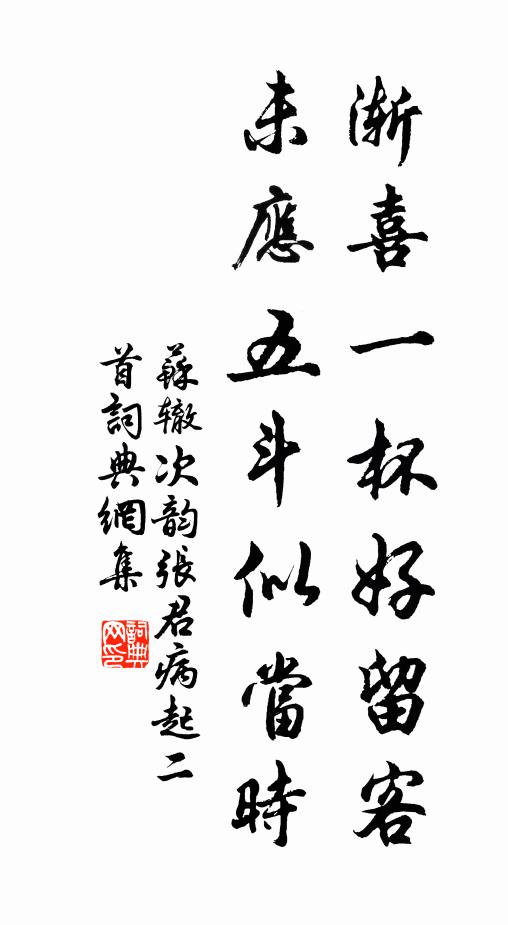 渐喜一杯好留客
未應五斗似當時
蘇辙次韵張君病起二
首詞典網集
詞典
网印